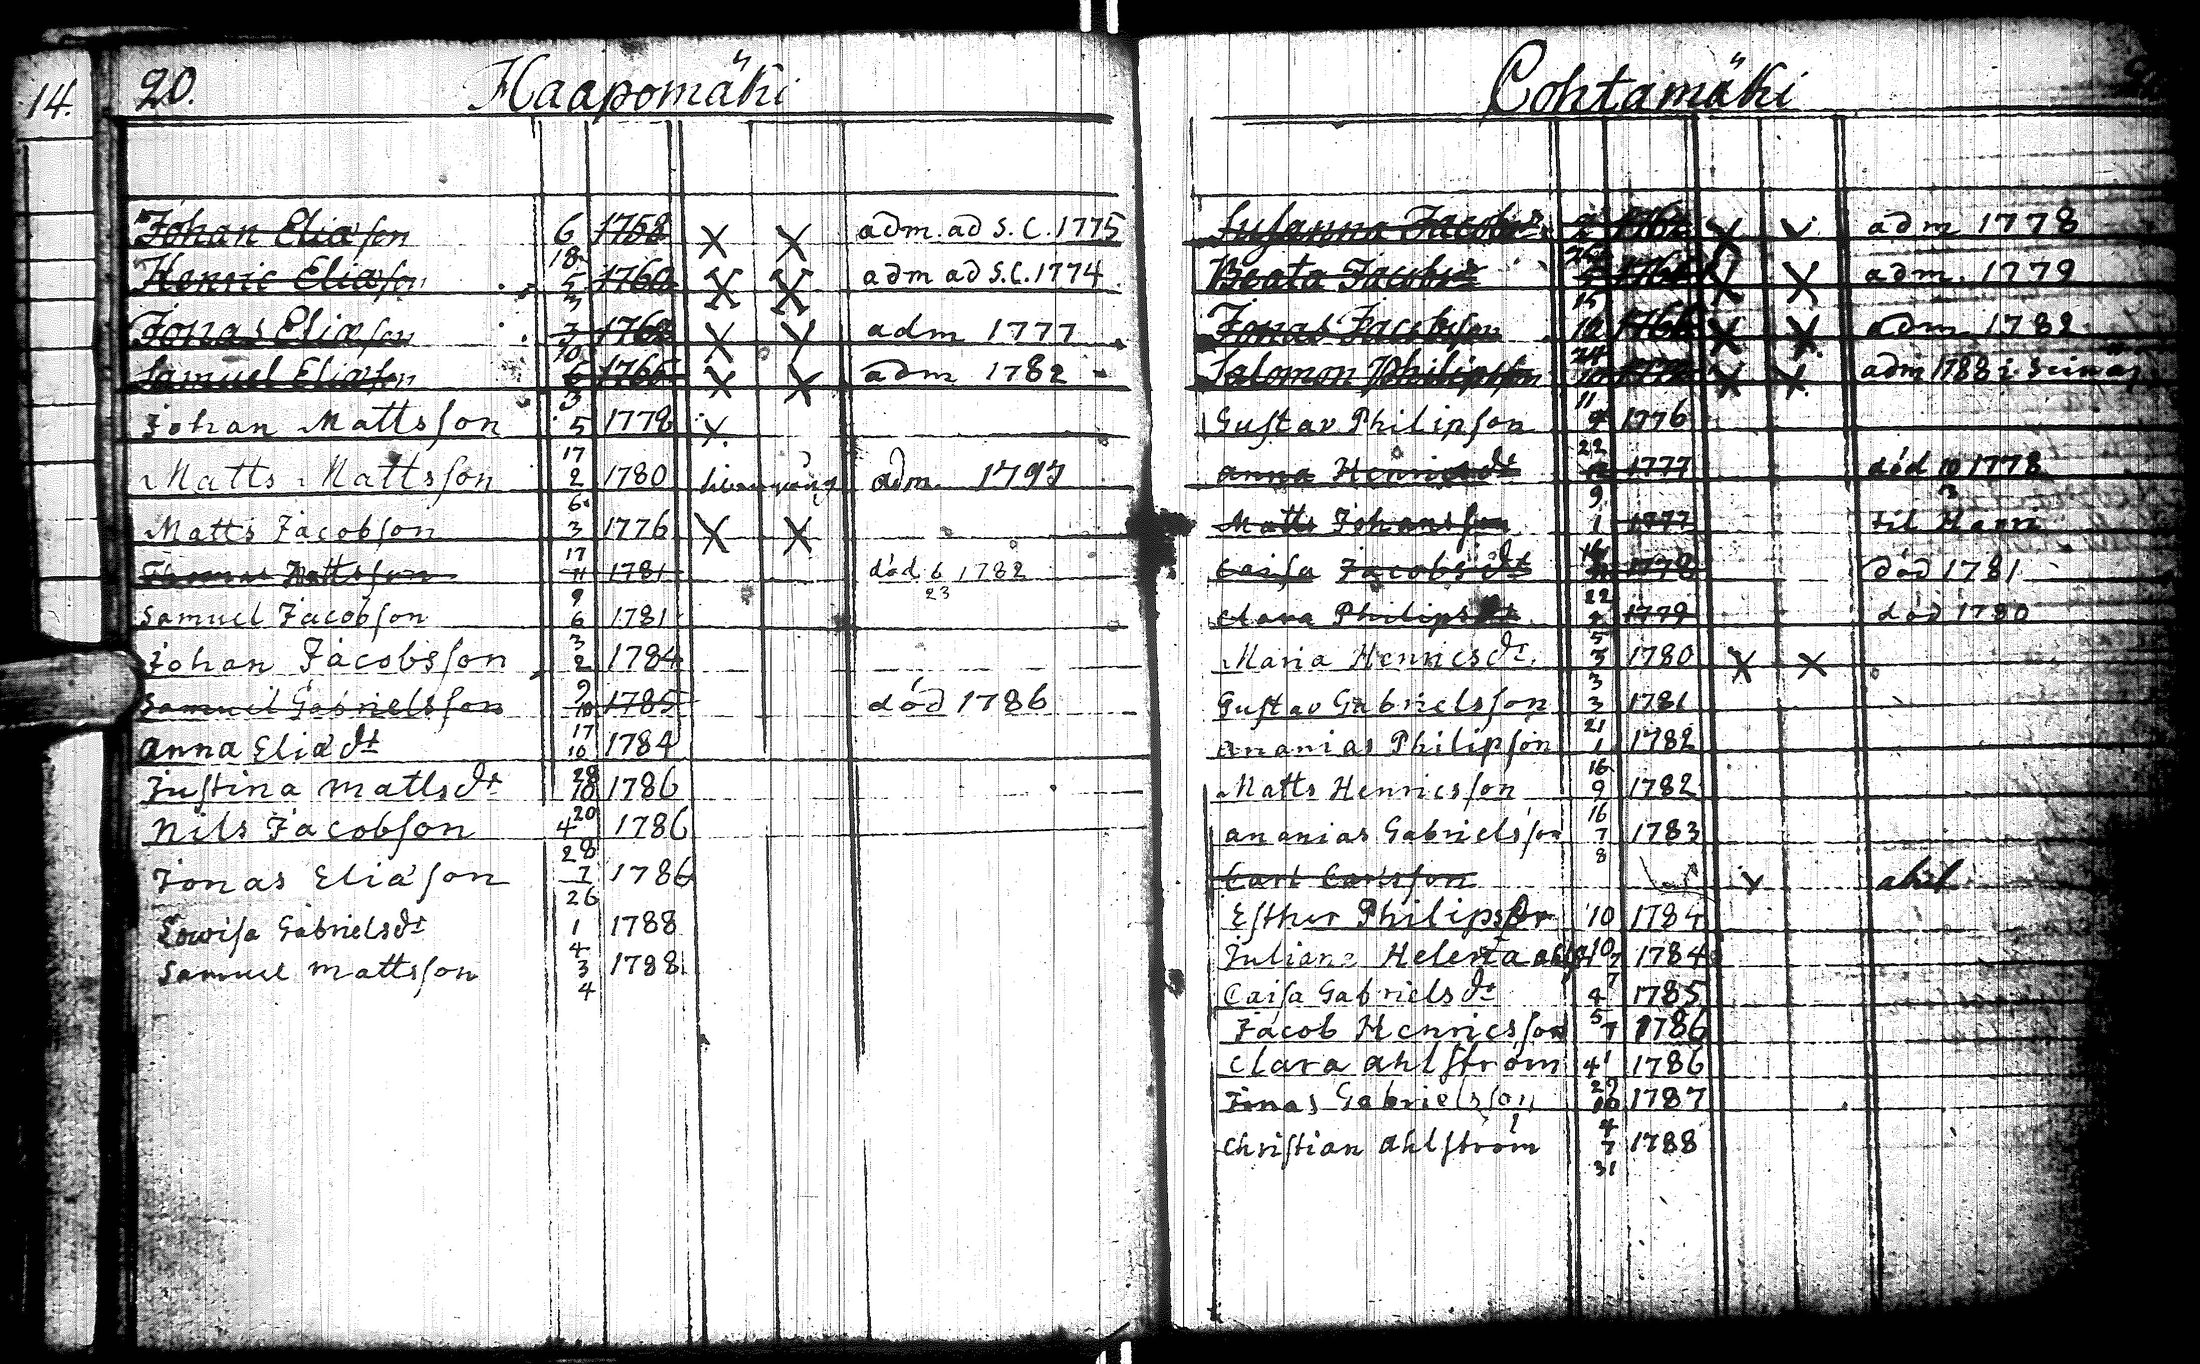 14.
20.
Haapomäki
Johan Eliæson 6/18 1758 X X adm. ad S.C. 1775
Henric Eliæson 5/3 1760 X X adm ad S.C. 1774
Jonas Eliæson 7/10 1763 X X adm 1777
Samuel Eliæson 6/3 1766 X X adm 1782
Johan Mattsson 5/17 1778 X
Matts Mattsson 2/6 1780 adm. 1797
Matts Jacobson 3/17 1776 X X
Thomas Mattsson 11/9 1781 död 6/23 1782
Samuel Jacobson 6/3 1781
Johan Jacobsson 2/9 1784
Samuel Gabrielsson 10/17 1785 död 1786
Anna Eliædt 10/28 1784
Justina Mattsdt 10/20 1786
Nils Jacobson 4/28 1786
Jonas Eliæson 7/26 1786
Lowisa Gabrielsdt 1/4 1788
Samuel Mattsson 3/4 1788
Cohtamäki
Susanna Jacobsd X X adm 1778
Beata Jacobsd X X adm. 1779
Jonas Jacobson 12/24 1766 X X adm 1782
Salomon Philipson 10/11 X X adm 1788 i
Gustav Philipson 1776
Anna Henricsdt 1777 död 10/3 1778
Matts Johansson 1 1777 til Harri
Caisa Jacobsdt 1778 död 1781
Clara Philipsdt 1779 död 1780
Maria Henricsdt. 3/3 1780 X X
Gustav Gabrielsson 3/21 1781
Ananias Philipson 1/16 1782
Matts Henricsson 9/16 1782
Ananias Gabrielsson 7/8 1783
Carl Carlsson
Esther Philipsdr 10/10 1784
Juliana Helena 1784
Caisa Gabrielsdt 1785
Jacob Henricsson 7 1786
Clara Ahlström 4/29 1786
Jonas Gabrielsson 10/4 1787
Christian Ahlström 7/31 1788